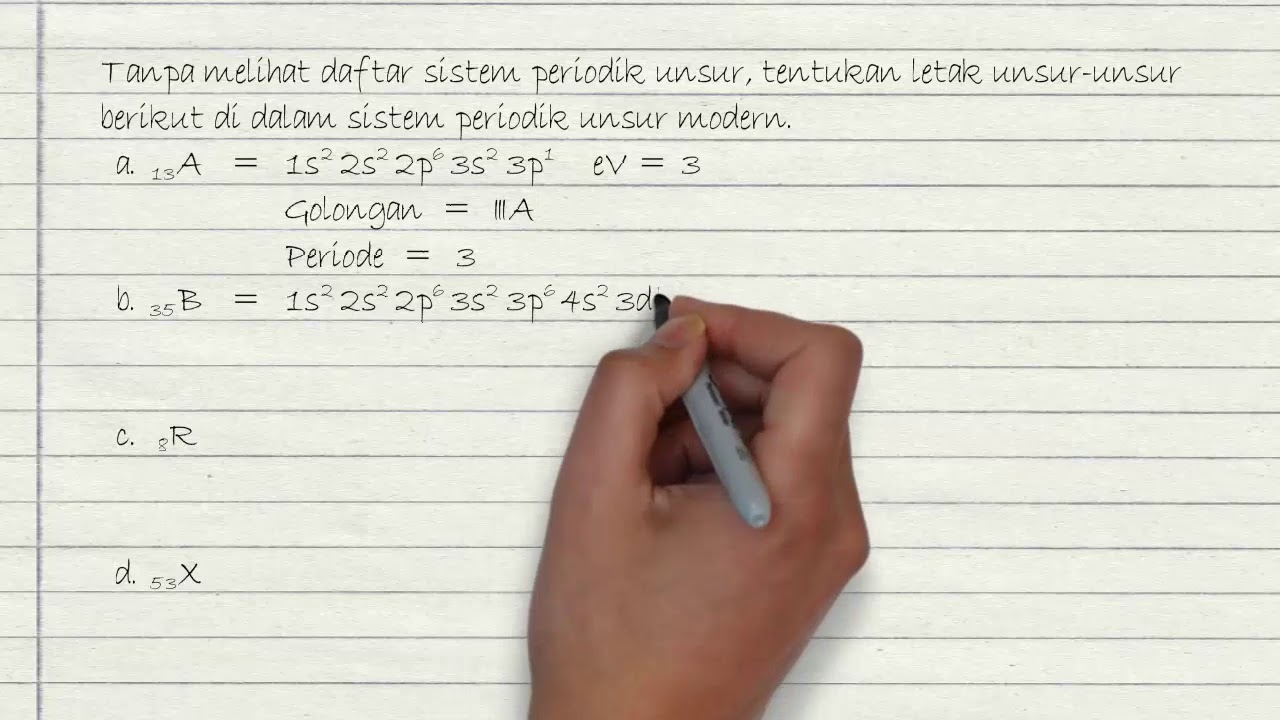 Tanpa melihat daftar sistem periodik unsur, tentukan letak unsur-unsur
berikut di dalam sistem periodik unsur modern.
a. ₁₃A = 1s² 2s² 2p⁶ 3s² 3p¹ eV = 3
Golongan = IIIA
Periode = 3
b. ₃₅B = 1s² 2s² 2p⁶ 3s² 3p⁶ 4s² 3d
c. ₈R
d. ₅₃X